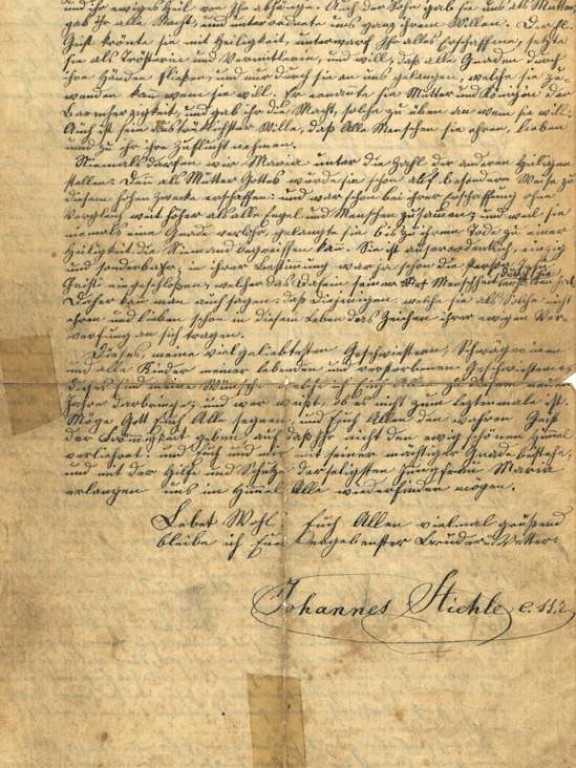 und ihr ewiges Heil von Ihr abhänge. Auch der Sohn gab sie uns als Mutter,
gab ihr alle Macht, und unterordnete uns ganz ihrem Willen. Der hl.
Geist krönte sie mit Heiligkeit, unterwarf Ihr alles Erschaffene, setzte
sie als Trösterin und Vermittlerin, und will, daß alle Gnaden durch
ihre Händen fließen, und nur durch sie an uns gelangen, welche sie zu-
wenden kann wem sie will. Er ernannte sie Mutter und Königin der
Barmherzigkeit, und gab ihr die Macht, solche zu üben an wem sie will.
Auch ist sein Wille, daß Alle Menschen sie ehren, lieben
und zu ihr ihre Zuflucht nehmen.
Niemals dürfen wir Maria unter die Zahl der anderen Heiligen
stellen: Denn als Mutter Gottes wurde sie schon auf besondere Weise zu
diesem hohen Zwecke erschaffen: und war schon bei ihrer Erschaffung ohne
Vergleich weit höher als alle Engel und Menschen zusammen; und weil sie
niemals eine Gnade verlohr, gelangte sie bis zu ihrem Tode zu einer
Heiligkeit die Niemand begreiffen kann. Sie ist auserordentlich, einzig
und sonderbahr; in ihrer Bestimmung war ja schon die Person Jesu
Christi eingeschloßen, welcher das Dasein seiner Menschheit
Daher kan man auch sagen: daß diejenigen welche sie als Solche nicht
ehren und lieben schon in diesem Leben das Zeichen ihrer ewigen Ver-
werfung an sich tragen.
Dieses, meine vielgeliebtesten Geschwistern, Schwägerinen
und alle Kinder meiner lebenden und verstorbenen Geschwistern,
dieses sind meine Wünsche welche ich Euch Allen zu diesem neuen
Jahre darbringe; und wer weißt, ob es nicht zum leztenmale ist.
Möge Gott Euch Alle segnen, und Euch Allen den wahren Geist
der Frömmigkeit geben, auf daß Ihr nicht den ewig schönen Himel
verliehret: und Euch und mir mit seiner mächtigen Gnade beistehe,
und mit der Hilfe und Schutze der seligsten Jungfrau Maria
erlangen uns im Himel Alle wiederfinden mögen.
Lebet Wohl! Euch Allen vielmal grüßend
bleibe ich Euer ergebenster Bruder u. Vetter
Johannes Stiehle